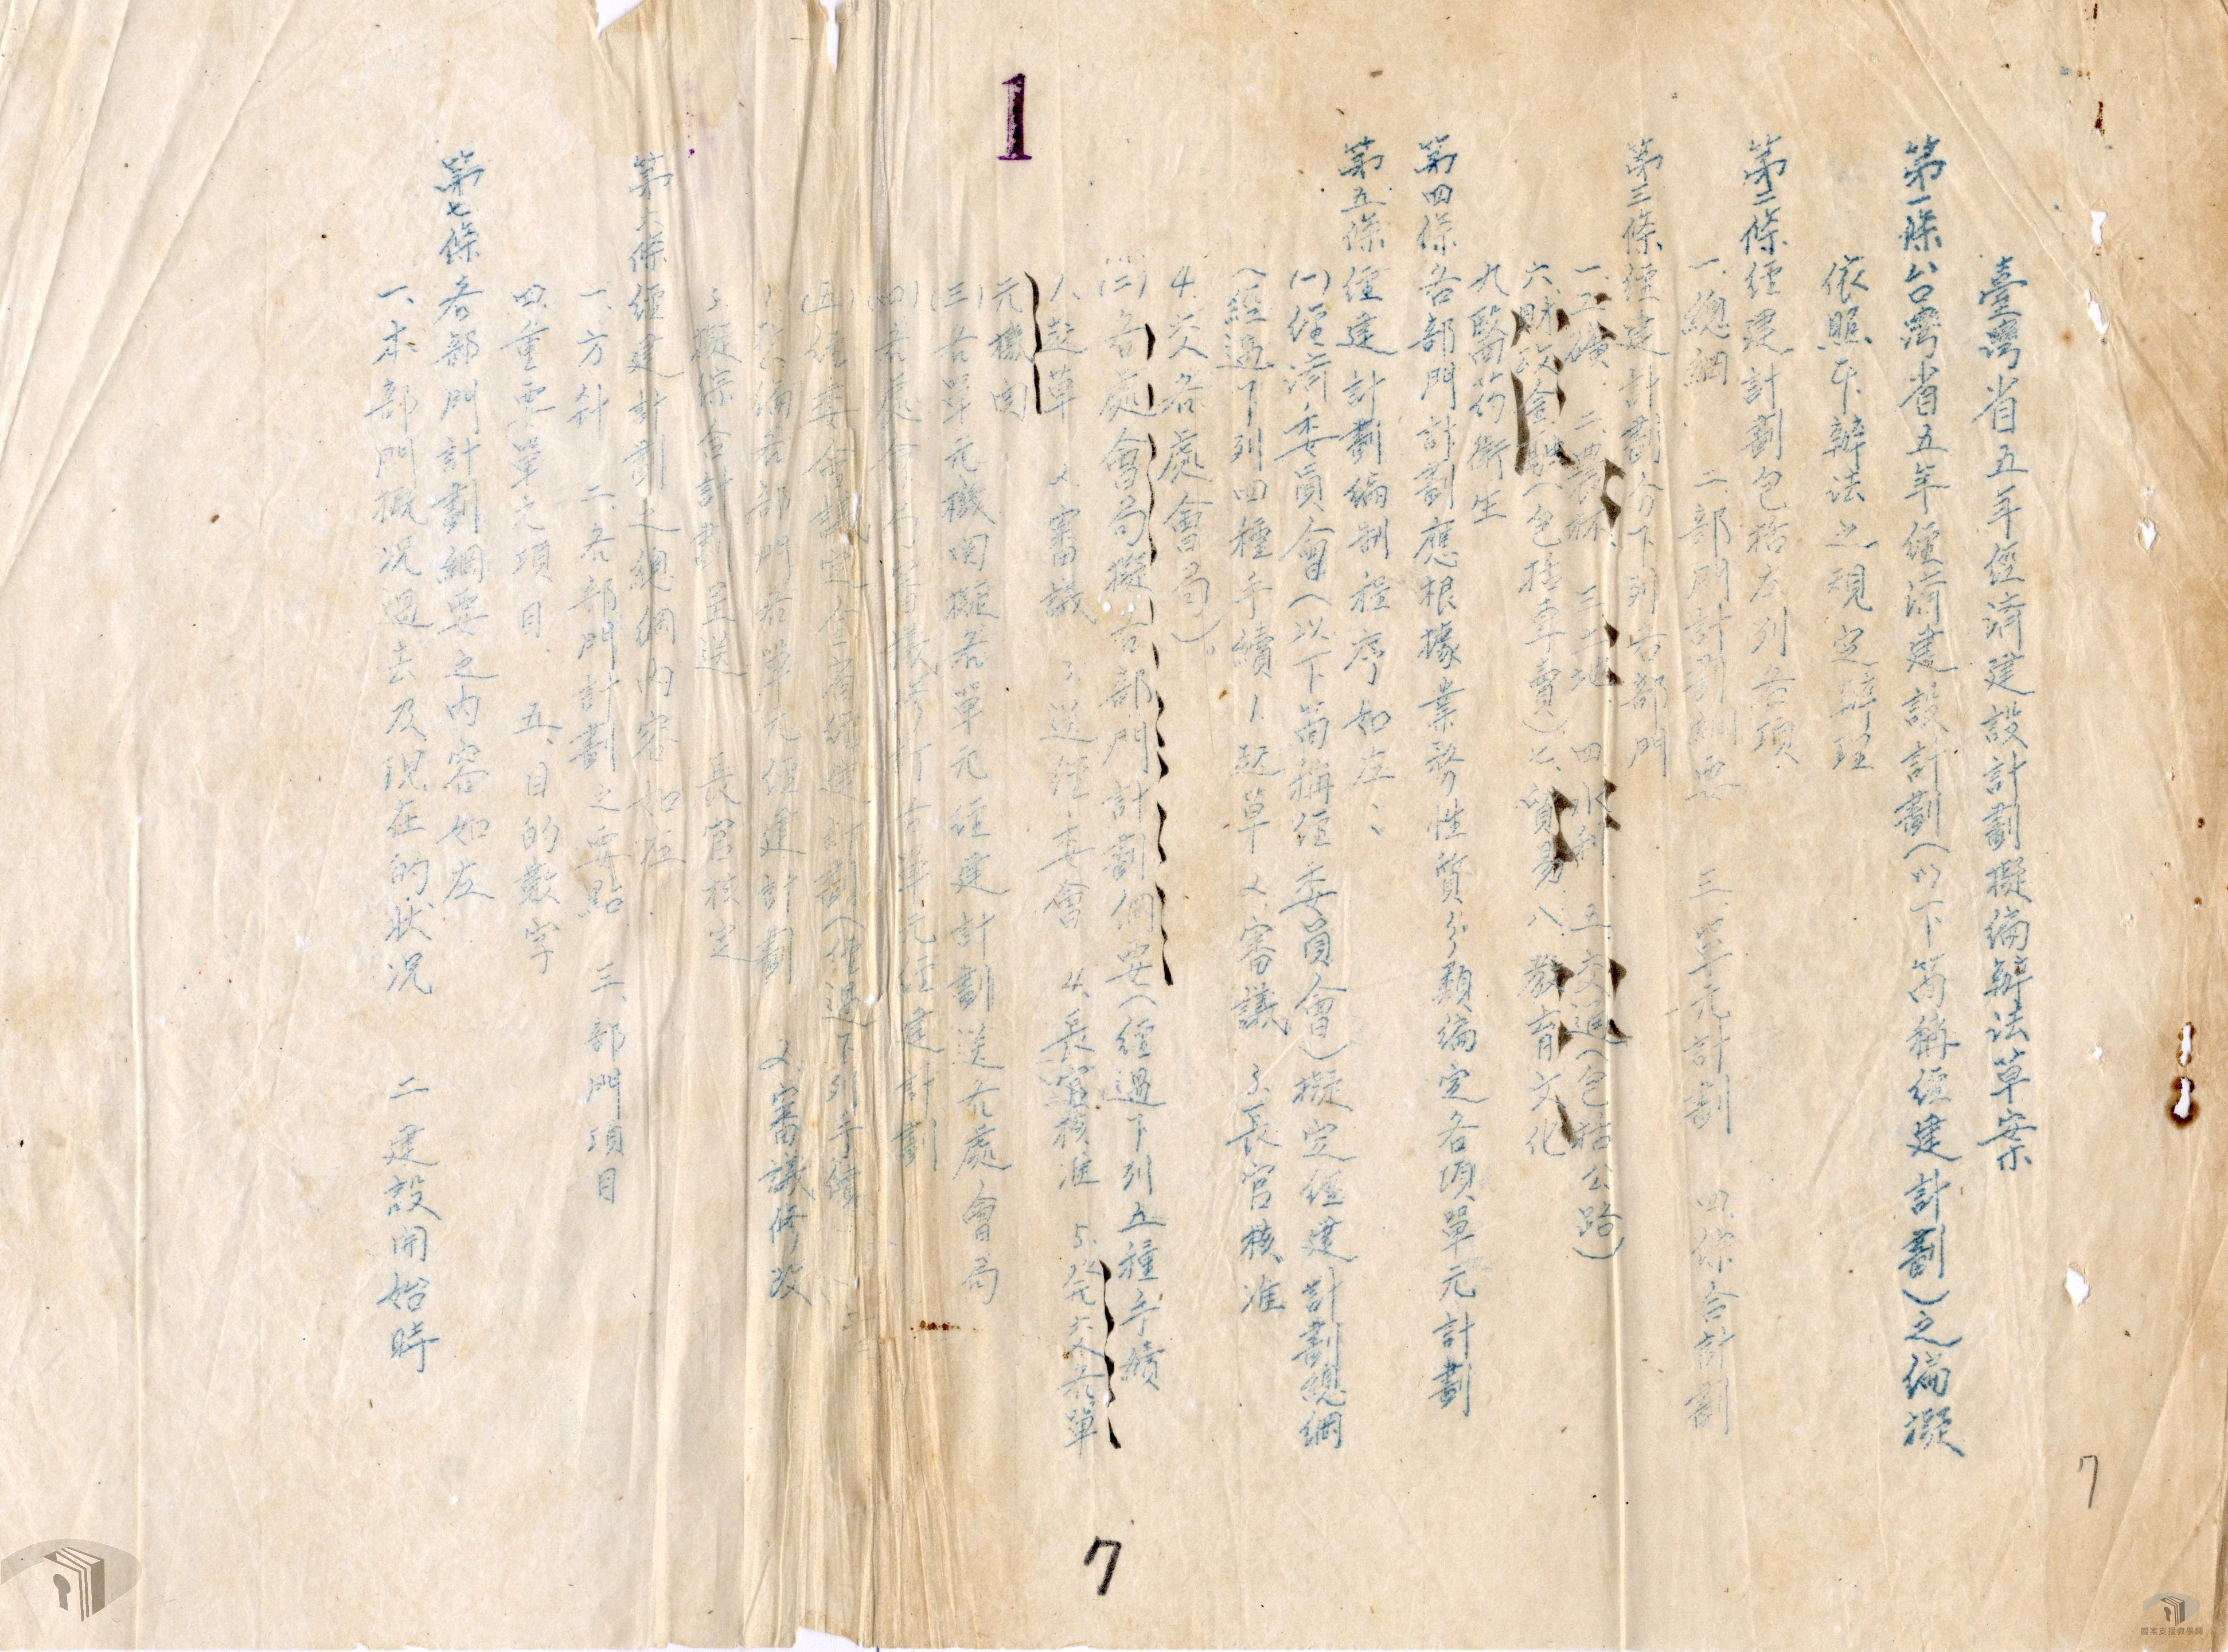 臺灣省五年經濟建設計劃擬編辦法草案
第一條台灣省五年經濟建設計劃(以下簡稱經建計劃)之編擬
依照本辦法之規定辦理
第二條經建計劃包括左列各項
一、總綱 二、部門計劃綱要 三、單元計劃 四、綜合計劃
第三條經建計劃分下列各部門
一、工礦 二、農林 三、土地 四、水利 五、交通(包括公路)
六、財政金融(包括專賣)七、貿易 八、教育文化
九、醫药衛生
第四條各部門計劃應根據業务性質分類編定各項單元計劃
第五條經建計劃編制程序如左:
(一)經濟委員會(以下簡稱經委員會)擬定經建計劃總綱
(經過下列四種手續1.起草2.審議3.長官核准
4.交各處會局)。
(二)各處會局擬各部門計劃綱要(經過下列五種手續
1.起草 2.審議 3.送經委會 4.長官核准 5.發交各單
元機関
(三)各單元機関擬各單元經建計劃送各處會局
(四)各處會局審議修訂各單元經建計劃
(五)經委會議定全省經建計劃(經過下列手續
1.彙編各部門各單元經建計劃 2.審議修改
3.擬綜合計劃呈送 長官核定
第六條經建計劃之總綱內容如左
一、方針 二、各部門計劃之要點 三、部門項目
四、重要單元項目 五、目的數字
第七條各部門計劃綱要之內容如左
一、本部門概况過去及現在的狀况 二建設開始時
1
7
7
檔案支援教學網